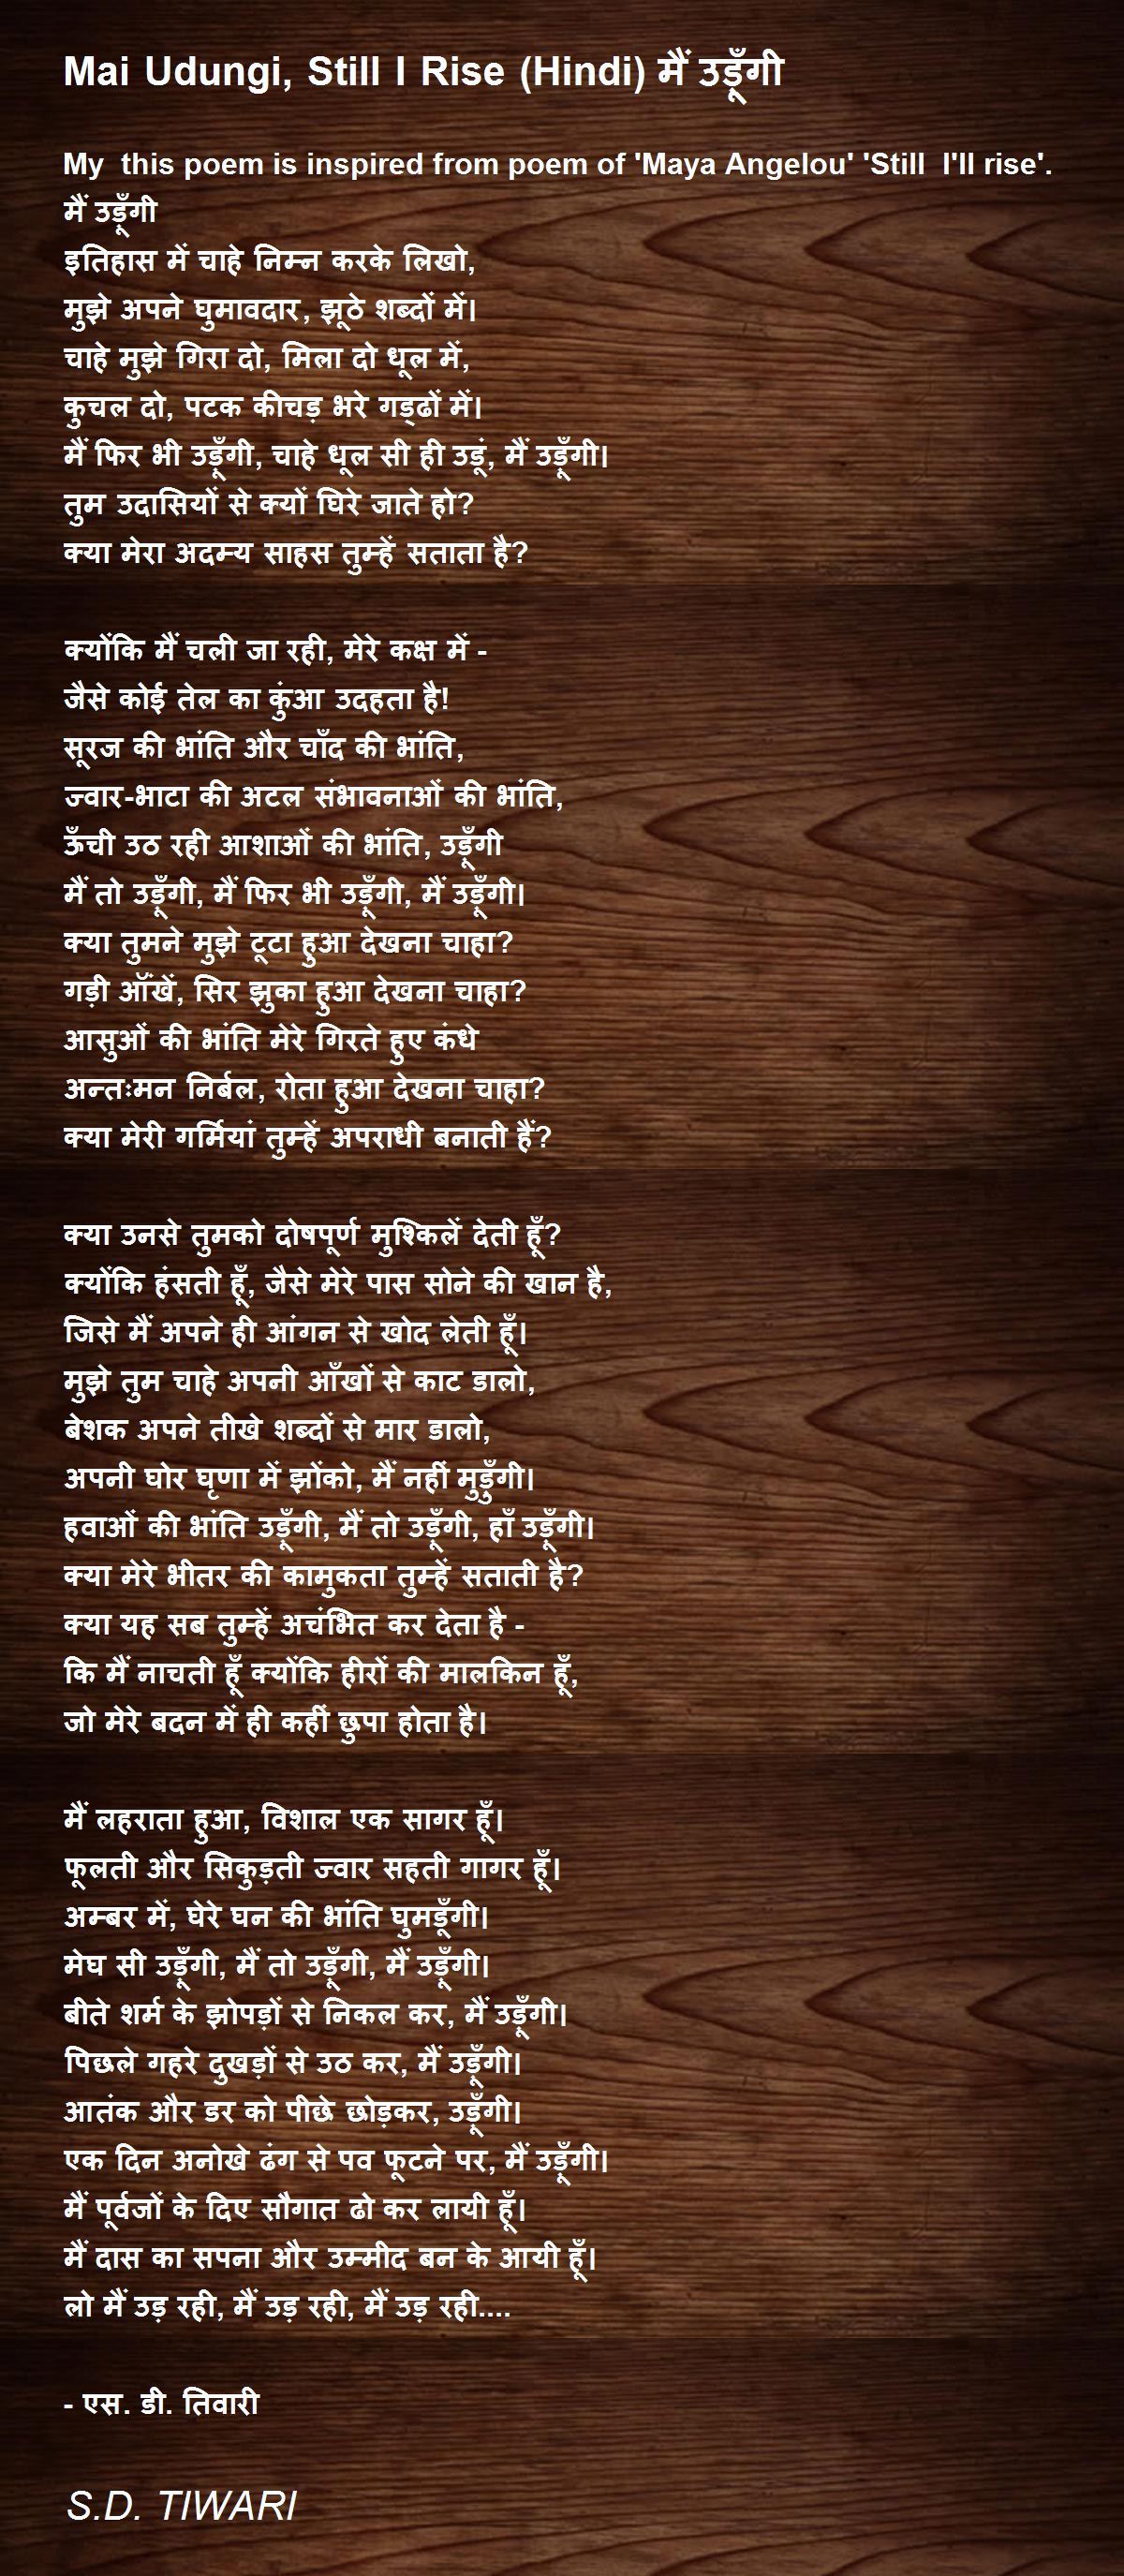 Mai Udungi, Still I Rise (Hindi) मैं उड़ूँगी
My this poem is inspired from poem of 'Maya Angelou' 'Still I'll rise'.
मैं उड़ूँगी
इतिहास में चाहे निम्न करके लिखो,
मुझे अपने घुमावदार, झूठे शब्दों में।
चाहे मुझे गिरा दो, मिला दो धूल में,
कुचल दो, पटक कीचड़ भरे गड्ढों में।
मैं फिर भी उड़ूँगी, चाहे धूल सी ही उडूं, मैं उड़ूँगी।
तुम उदासियों से क्यों घिरे जाते हो?
क्या मेरा अदम्य साहस तुम्हें सताता है?
क्योंकि मैं चली जा रही, मेरे कक्ष में -
जैसे कोई तेल का कुंआ उदहता है!
सूरज की भांति और चाँद की भांति,
ज्वार-भाटा की अटल संभावनाओं की भांति,
ऊँची उठ रही आशाओं की भांति, उड़ूँगी
मैं तो उड़ूँगी, मैं फिर भी उड़ूँगी, मैं उड़ूँगी।
क्या तुमने मुझे टूटा हुआ देखना चाहा?
गड़ी ऑंखें, सिर झुका हुआ देखना चाहा?
आसुओं की भांति मेरे गिरते हुए कंधे
अन्तःमन निर्बल, रोता हुआ देखना चाहा?
क्या मेरी गर्मियां तुम्हें अपराधी बनाती हैं?
क्या उनसे तुमको दोषपूर्ण मुश्किलें देती हूँ?
क्योंकि हंसती हूँ, जैसे मेरे पास सोने की खान है,
जिसे मैं अपने ही आंगन से खोद लेती हूँ।
मुझे तुम चाहे अपनी आँखों से काट डालो,
बेशक अपने तीखे शब्दों से मार डालो,
अपनी घोर घृणा में झोंको, मैं नहीं मुड़ुँगी।
हवाओं की भांति उड़ूँगी, मैं तो उड़ूँगी, हाँ उड़ूँगी।
क्या मेरे भीतर की कामुकता तुम्हें सताती है?
क्या यह सब तुम्हें अचंभित कर देता है -
कि मैं नाचती हूँ क्योंकि हीरों की मालकिन हूँ,
जो मेरे बदन में ही कहीं छुपा होता है।
मैं लहराता हुआ, विशाल एक सागर हूँ।
फूलती और सिकुड़ती ज्वार सहती गागर हूँ।
अम्बर में, घेरे घन की भांति घुमडूँगी।
मेघ सी उड़ूँगी, मैं तो उड़ूँगी, मैं उड़ूँगी।
बीते शर्म के झोपड़ों से निकल कर, मैं उड़ूँगी।
पिछले गहरे दुखड़ों से उठ कर, मैं उड़ूँगी।
आतंक और डर को पीछे छोड़कर, उड़ूँगी।
एक दिन अनोखे ढंग से पव फूटने पर, मैं उड़ूँगी।
मैं पूर्वजों के दिए सौगात ढो कर लायी हूँ।
मैं दास का सपना और उम्मीद बन के आयी हूँ।
लो मैं उड़ रही, मैं उड़ रही, मैं उड़ रही....
- एस. डी. तिवारी
S.D. TIWARI